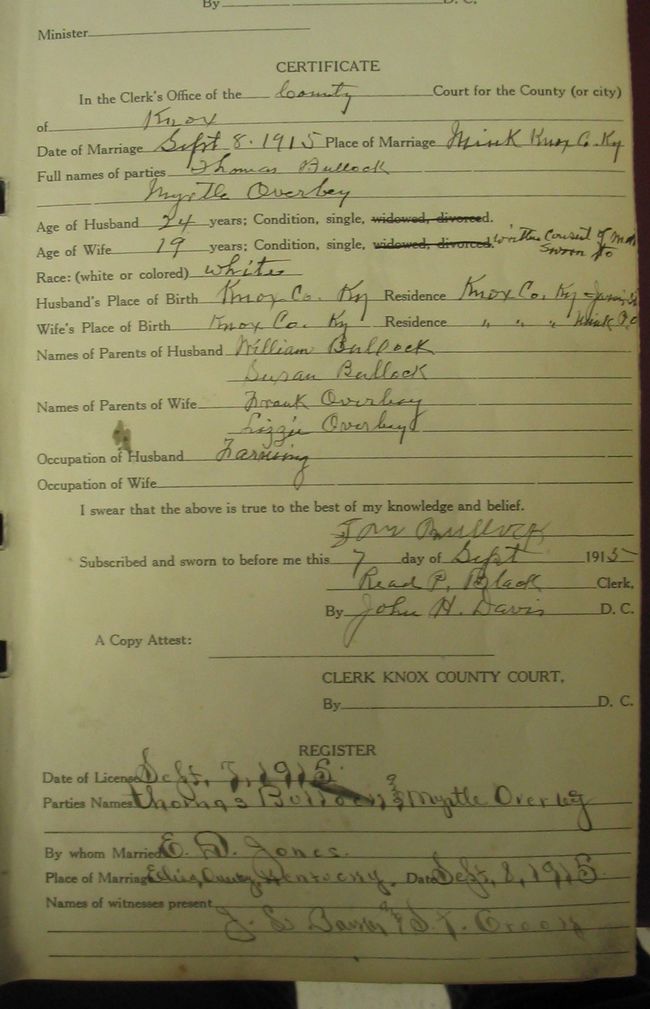 By D. C.
Minister
CERTIFICATE
In the Clerk's Office of the County Court for the County (or city)
of Knox
Date of Marriage Sept 8. 1915 Place of Marriage Mink Knox Co. Ky
Full names of parties Thomas Bullock
Myrtle Overbey
Age of Husband 24 years; Condition, single, widowed, divorced.
Age of Wife 19 years; Condition, single, widowed, divorced. written consent of
sworn to
Race: (white or colored) white
Husband's Place of Birth Knox Co. Ky Residence Knox Co. Ky
Wife's Place of Birth Knox Co. Ky Residence " " " Mink P.O
Names of Parents of Husband William Bullock
Susan Bullock
Names of Parents of Wife Frank Overbey
Lizzie Overbey
Occupation of Husband Farming
Occupation of Wife
I swear that the above is true to the best of my knowledge and belief.
Tom Bullock
Subscribed and sworn to before me this 7 day of Sept 1915
Read P. Black Clerk,
By John H. Davis D. C.
A Copy Attest:
CLERK KNOX COUNTY COURT,
By D. C.
REGISTER
Date of License Sept, 7, 1915.
Parties Names Thomas Bullock & Myrtle Overbey
By whom Married E. D. Jones.
Place of Marriage Kentucky. Date Sept, 8, 1915.
Names of witnesses present
J. L. &